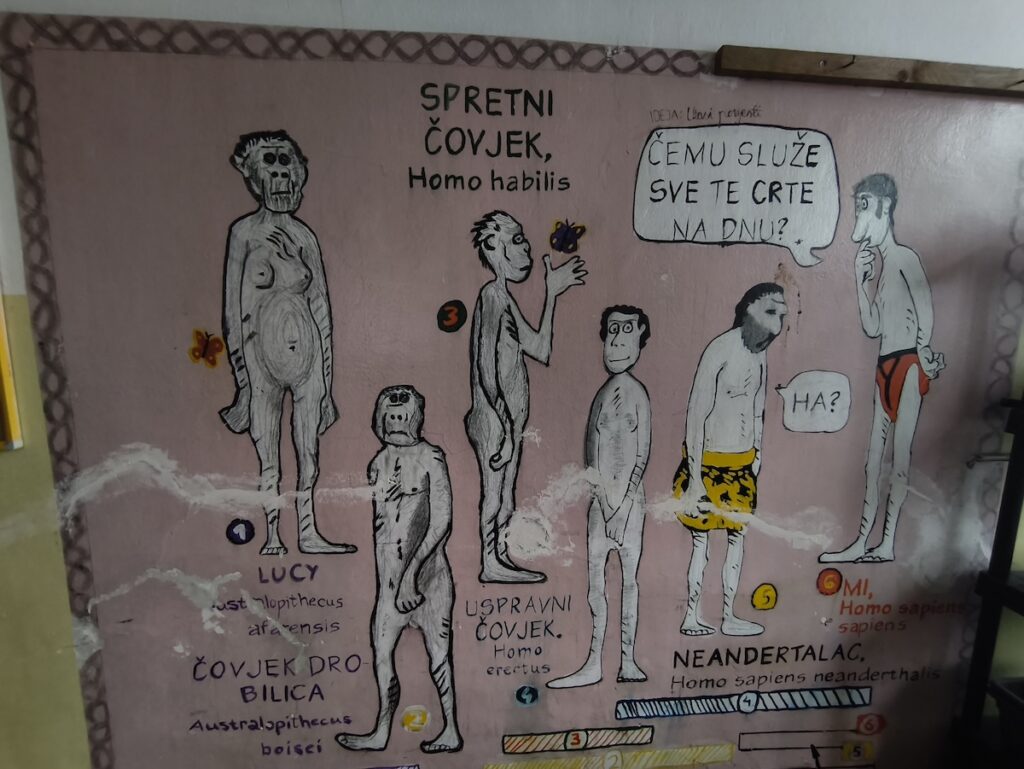 SPRETNI
ČOVJEK,
Homo habilis
IDEJA:
ČEMU SLUŽE
SVE TE CRTE
NA DNU?
3
HA?
1
LUCY
Australopithecus
afarensis
ČOVJEK DRO-
BILICA
Australopithecus
boisei
2
USPRAVNI
ČOVJEK.
Homo
erectus
4
5
NEANDERTALAC,
Homo sapiens neanderthalis
6
MI,
Homo sapiens
sapiens
4
3
6
2
5